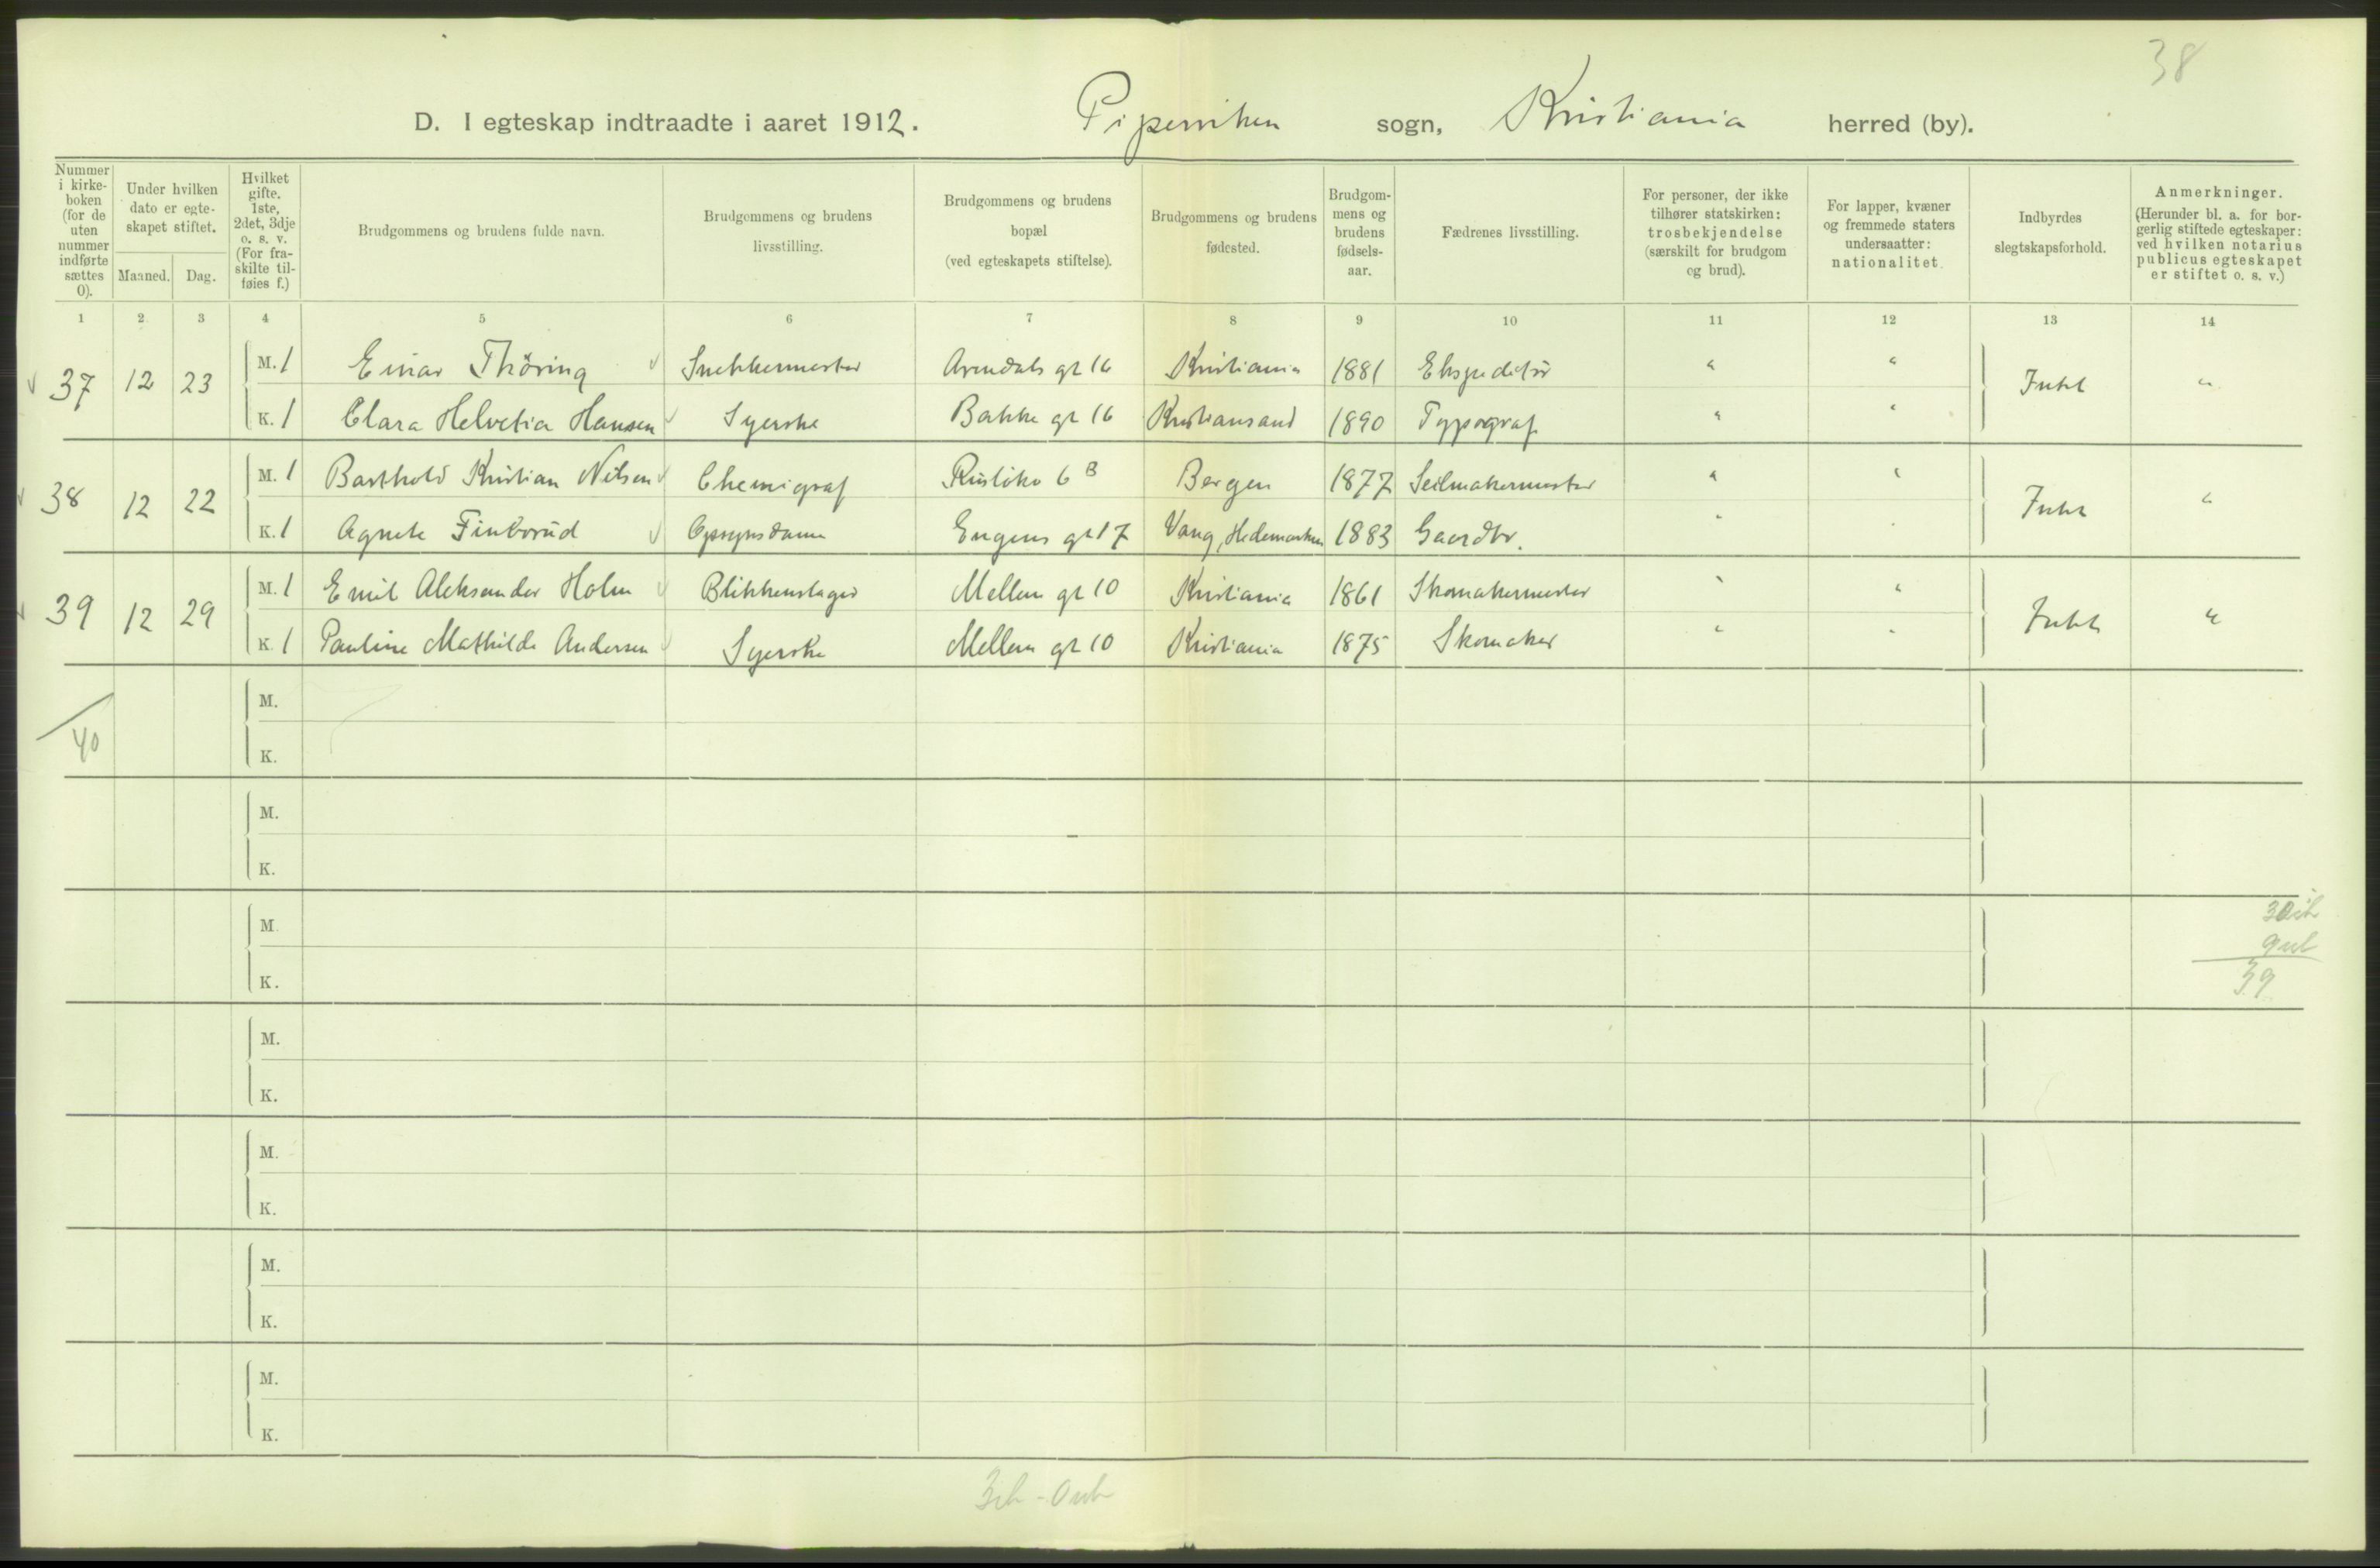 38
D. I egteskap indtraadte i aaret 1912. Piperviken sogn, Kristiania herred (by).
Nummer i kirke-boken (for de uten nummer indførte sættes 0).
Under hvilken dato er egte-skapet stiftet.
Maaned. Dag.
Hvilket gifte. 1ste, 2det, 3dje o. s. v. (For fra-skilte til-føies f.)
Brudgommens og brudens fulde navn.
Brudgommens og brudens livsstilling.
Brudgommens og brudens bopæl (ved egteskapets stiftelse).
Brudgommens og brudens fødested.
Brudgom-mens og brudens fødsels-aar.
Fædrenes livsstilling.
For personer, der ikke tilhører statskirken: trosbekjendelse (særskilt for brudgom og brud).
For lapper, kvæner og fremmede staters undersaatter: nationalitet.
Indbyrdes slegtskapsforhold.
Anmerkninger. (Herunder bl. a. for bor-gerlig stiftede egteskaper: ved hvilken notarius publicus egteskapet er stiftet o. s. v.)
1 2 3 4 5 6 7 8 9 10 11 12 13 14
37 12 23 M. 1 Einar Thöring Snekkermester Arendals gt 16 Kristiania 1881 Ekspeditör " " Intet "
K. 1 Clara Helvetia Hansen Syerske Bakke gt 16 Kristiansand 1890 Typograf " "
38 12 22 M. 1 Barthold Kristian Nilsen Chemigraf Rusløkv 6 B Bergen 1877 Seilmakermester " " Intet "
K. 1 Agnete Finborud Opsynsdame Eugens gt 17 Vang, Hedemarken 1883 Gaardbr. " "
39 12 29 M. 1 Emil Aleksander Holm Blikkenslager Mellem gt 10 Kristiania 1861 Skomakermester " " Intet "
K. 1 Pauline Mathilde Andersen Syerske Mellem gt 10 Kristiania 1875 Skomaker " "
40 M.
K.
M.
K.
M.
K.
30 ib
9 ub
39
M.
K.
M.
K.
M.
K.
M.
K.
3 ib - 0 ub